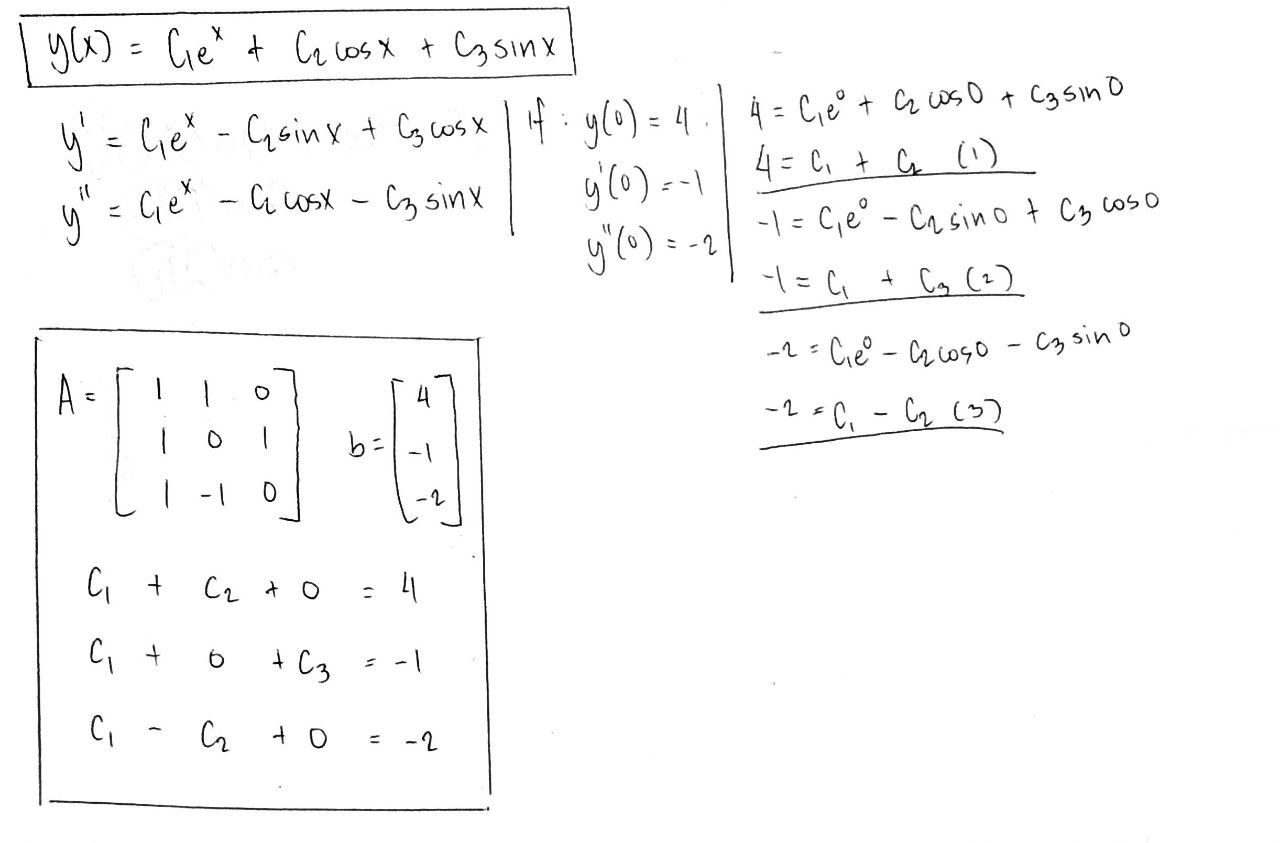 y(x) = C₁eˣ + C₂ cos x + C₃ sin x
y' = C₁eˣ - C₂ sin x + C₃ cos x
y'' = C₁eˣ - C₂ cos x - C₃ sin x
If : y(0) = 4.
y'(0) = -1
y''(0) = -2
4 = C₁e⁰ + C₂ cos 0 + C₃ sin 0
4 = C₁ + C₂ (1)
-1 = C₁e⁰ - C₂ sin 0 + C₃ cos 0
-1 = C₁ + C₃ (2)
-2 = C₁e⁰ - C₂ cos 0 - C₃ sin 0
-2 = C₁ - C₂ (3)
A = [ 1 1 0
1 0 1
1 -1 0 ]
b = [ 4
-1
-2 ]
C₁ + C₂ + 0 = 4
C₁ + 0 + C₃ = -1
C₁ - C₂ + 0 = -2